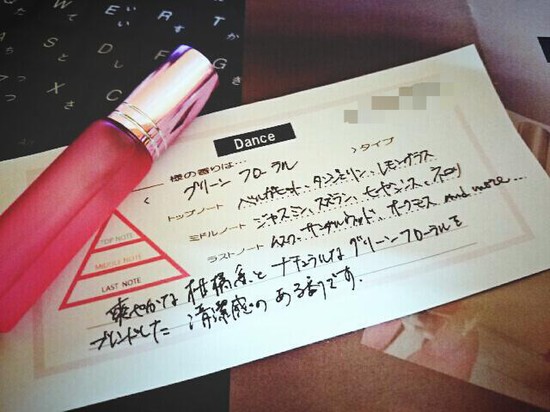 Dance
様の香りは…
< グリーン フローラル >タイプ
トップノート ベルガモット、タンジェリン、レモングラス
ミドルノート ジャスミン、スズラン、ヒヤシンス、スズラン
ラストノート ムスク、サンダルウッド、オークモス and more...
TOP NOTE
MIDDLE NOTE
LAST NOTE
爽やかな柑橘系とナチュラルなグリーンフローラルを
ブレンドした清潔感のある香りです.